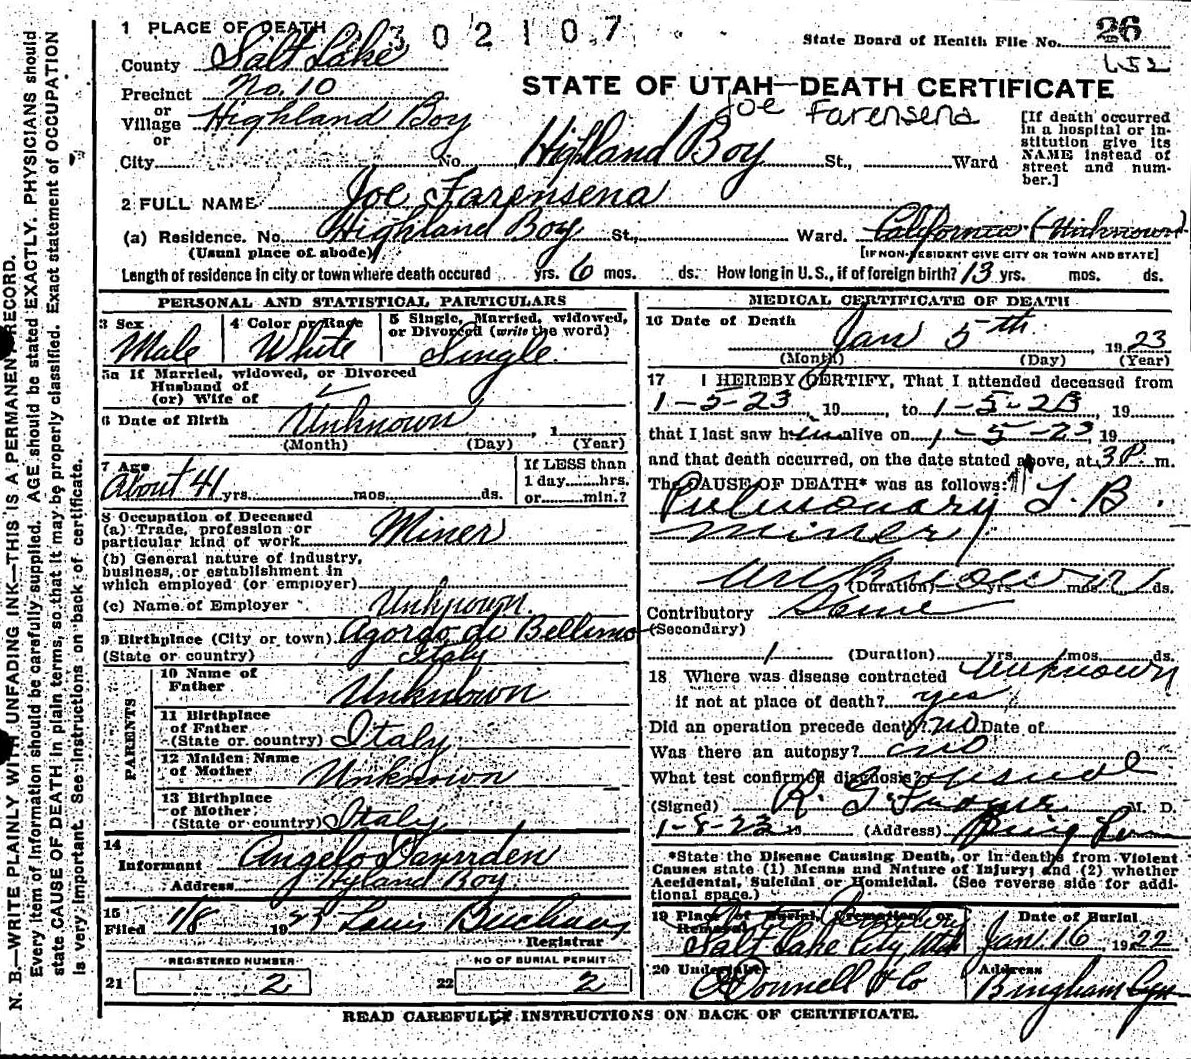 1 PLACE OF DEATH 302107
State Board of Health File No. 26
652
County Salt Lake
Precinct No. 10
STATE OF UTAH—DEATH CERTIFICATE
or
Village Highland Boy
Joe Farensena
or
City No. Highland Boy St., Ward
[If death occurred in a hospital or institution give its NAME instead of street and number.]
2 FULL NAME Joe Farensena
(a) Residence. No. Highland Boy St., Ward. California (Unknown)
(Usual place of abode) [IF NON-RESIDENT GIVE CITY OR TOWN AND STATE]
Length of residence in city or town where death occured yrs. 6 mos. ds. How long in U. S., if of foreign birth? 13 yrs. mos. ds.
PERSONAL AND STATISTICAL PARTICULARS
3 Sex 4 Color or Race 5 Single, Married, widowed,
or Divorced (write the word)
Male White Single
5a If Married, widowed, or Divorced
Husband of
(or) Wife of
6 Date of Birth Unknown , 1
(Month) (Day) (Year)
7 Age If LESS than
About 41 yrs. mos. ds. 1 day hrs.
or min.?
8 Occupation of Deceased
(a) Trade, profession or
particular kind of work Miner
(b) General nature of industry,
business, or establishment in
which employed (or employer)
(c) Name of Employer Unknown
9 Birthplace (City or town) Agordo di Bellimo
(State or country) Italy
PARENTS
10 Name of
Father Unknown
11 Birthplace
of Father
(State or country) Italy
12 Maiden Name
of Mother Unknown
13 Birthplace
of Mother
(State or country) Italy
14
Informant Angelo
Address Hyland Boy
15
Filed 1/8 1923 Louis Buchnau
Registrar
REGISTERED NUMBER NO OF BURIAL PERMIT
21 2 22 2
MEDICAL CERTIFICATE OF DEATH
16 Date of Death Jan 5th , 1923
(Month) (Day) (Year)
17 I HEREBY CERTIFY, That I attended deceased from
1-5-23, 19 , to 1-5-23, 19
that I last saw him alive on 1-5-23, 19 ,
and that death occurred, on the date stated above, at 3 P. m.
The CAUSE OF DEATH* was as follows:
Pulmonary T. B.
Miner
Unknown
(Duration) yrs. mos. ds.
Contributory Same
(Secondary)
(Duration) yrs. mos. ds.
18 Where was disease contracted Unknown
if not at place of death? yes
Did an operation precede death? no Date of
Was there an autopsy? no
What test confirmed diagnosis? visual
(Signed) R. G. M. D.
1-8-23 19 (Address) Bing
*State the Disease Causing Death, or in deaths from Violent
Causes state (1) Means and Nature of Injury; and (2) whether
Accidental, Suicidal or Homicidal. (See reverse side for additional space.)
19 Place of Burial, Cremation, or
Removal
Date of Burial
Salt Lake City, Utah Jan 16 1922
20 Undertaker Address
O'Donnell & Co Bingham Cyn
READ CAREFULLY INSTRUCTIONS ON BACK OF CERTIFICATE.
N. B.—WRITE PLAINLY WITH UNFADING INK—THIS IS A PERMANENT RECORD.
Every item of information should be carefully supplied. AGE should be stated EXACTLY. PHYSICIANS should
state CAUSE OF DEATH in plain terms, so that it may be properly classified. Exact statement of OCCUPATION
is very important. See instructions on back of certificate.